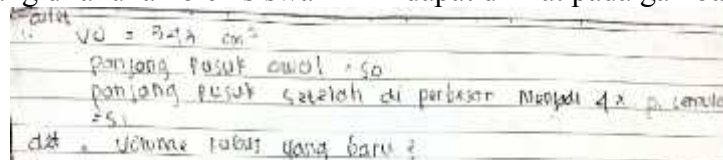 V0 = 34,3 cm³
panjang rusuk awal : S0
panjang rusuk setelah di perbesar menjadi 4x p. semula
= S1
dit : Volume kubus yang baru ?